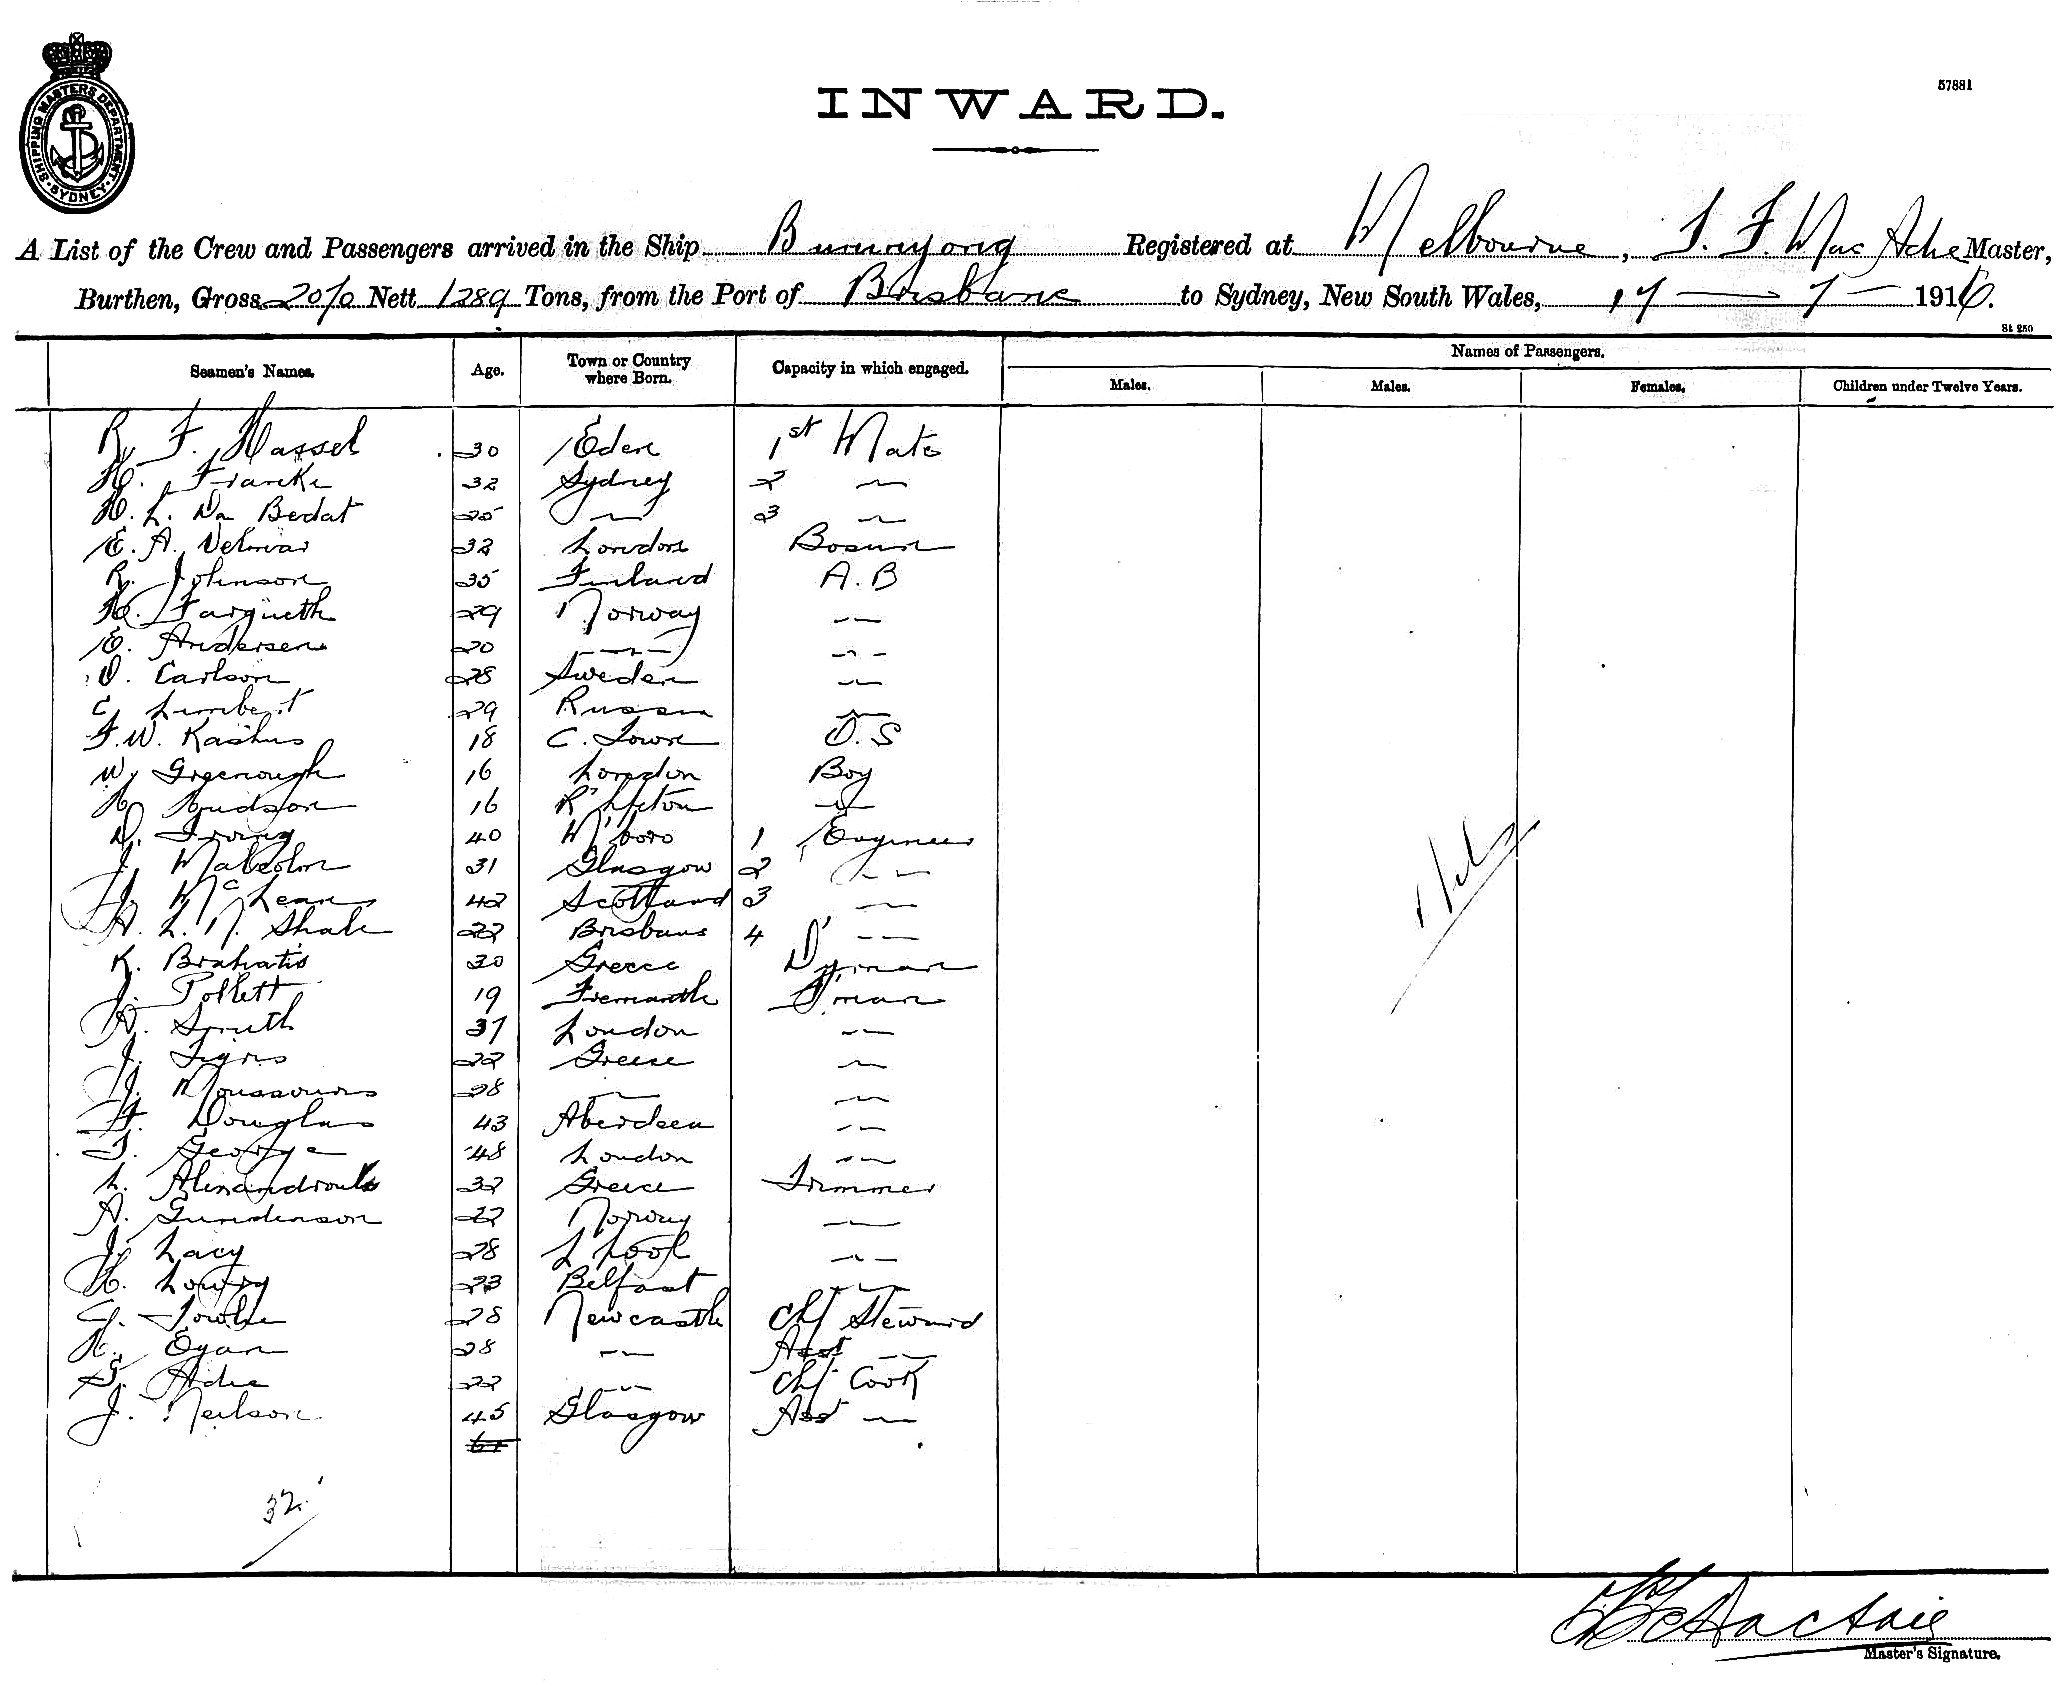 SHIPPING MASTERS DEPARTMENT · SYDNEY ·
57881
INWARD.
A List of the Crew and Passengers arrived in the Ship Buninyong Registered at Melbourne, Master,
Burthen, Gross 2070 Nett 1289 Tons, from the Port of Brisbane to Sydney, New South Wales, 17 — 7 — 1916.
St 250
Seamen's Names. Age. Town or Country where Born. Capacity in which engaged. Names of Passengers.
Males. Males. Females. Children under Twelve Years.
R. F. Hassel 30 Eden 1st Mate
H. Francke 32 Sydney 2 —
H. L. Du Bedat 25 — 3 —
E. A. 32 London Bosun
R. Johnson 35 Finland A.B
H. 29 Norway — —
E. Andersen 20 — — — —
O. Carlson 28 Sweden — —
C Limbert 29 Russia —
F. W. 18 C. Town O.S
W. Greenough 16 London Boy
H. Hudson 16 R'hpton
D. Irving 40 M'boro 1 Engineer
J. Malcolm 31 Glasgow 2 — —
J. McLean 42 Scotland 3 — —
A. L. N. Shale 22 Brisbane 4 — —
K. Brahatis 30 Greece D'yman
J. Pollett 19 Fremantle F'man
A. Smith 37 London — —
J. 22 Greese —
J. 28 — —
F. Douglas 43 Aberdeen — —
T. George 48 London — —
L. 32 Greece Trimmer
A. Gundenson 22 Norway —
J. Lacy 28 L'pool — —
H. Lowry 23 Belfast — —
G. 28 Newcastle Chf Steward
H. Egan 28 — — Asst —
Adie 22 — — Chf Cook
J. Neilson 45 Glasgow Asst —
32
Master's Signature.